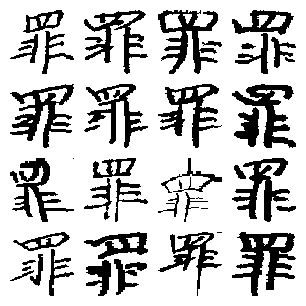 罪罪罪罪
罪罪罪罪
罪罪罪罪
罪罪罪罪